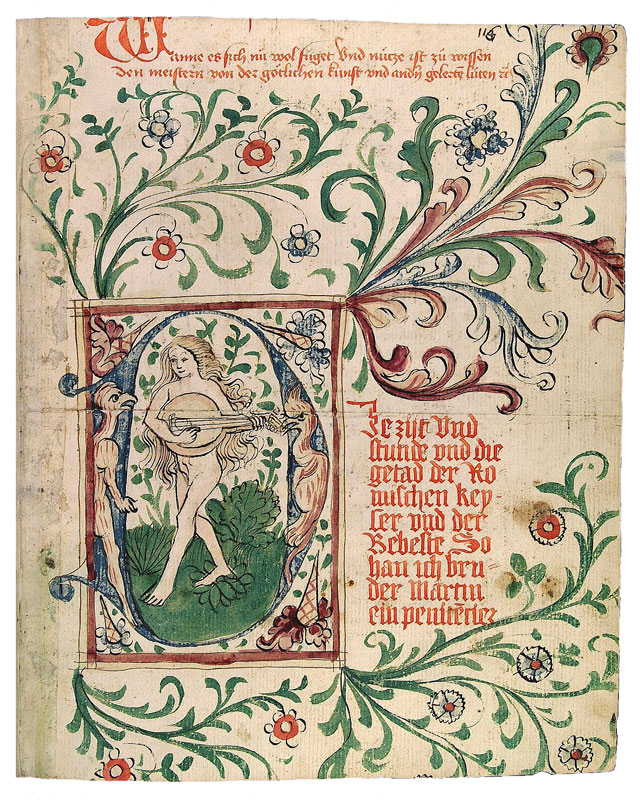 Wanne es sich nu wol fuget Vnd nucze ist zu wissen
Den meistern von der gotlichen kunst vnd andn gelertē luten ꝛc
Je zijt Vnd
stunde vnd die
getad der Ro
mischen key-
ser vnd der
Bebeste So
han ich bru-
der Martin
ein penitētier